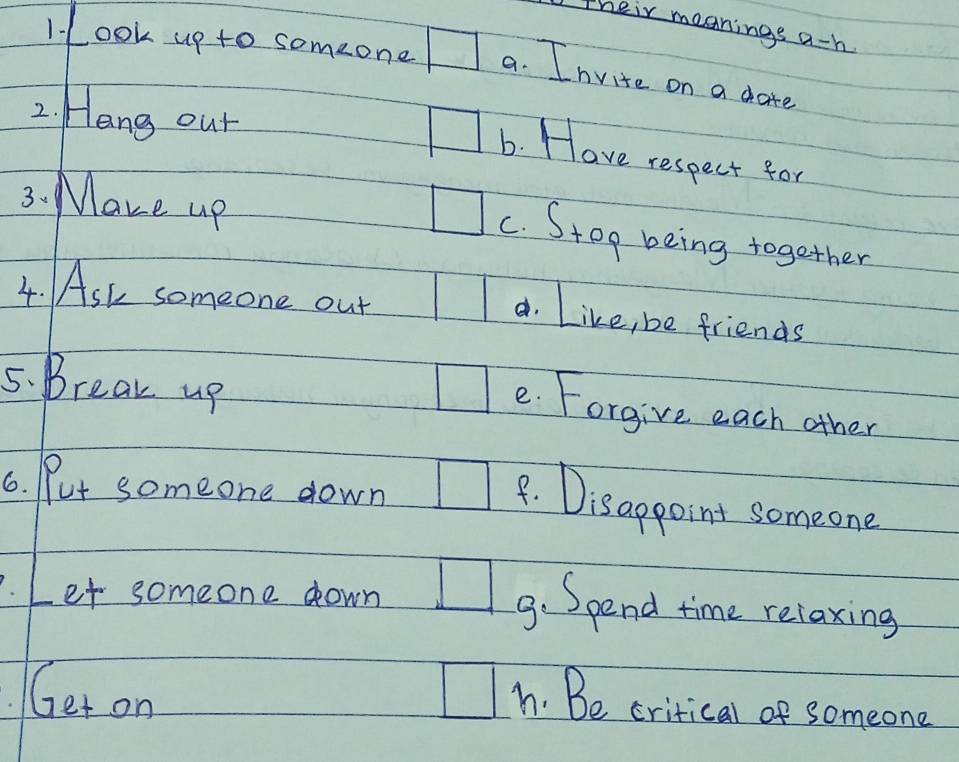 their meanings a-h.
1. Look up to someone a. Invite on a date
2. Hang out b. Have respect for
3. Make up c. Stop being together
4. Ask someone out d. Like, be friends
5. Break up e. Forgive each other
6. Put someone down f. Disappoint someone
. Let someone down g. Spend time relaxing
. Get on h. Be critical of someone